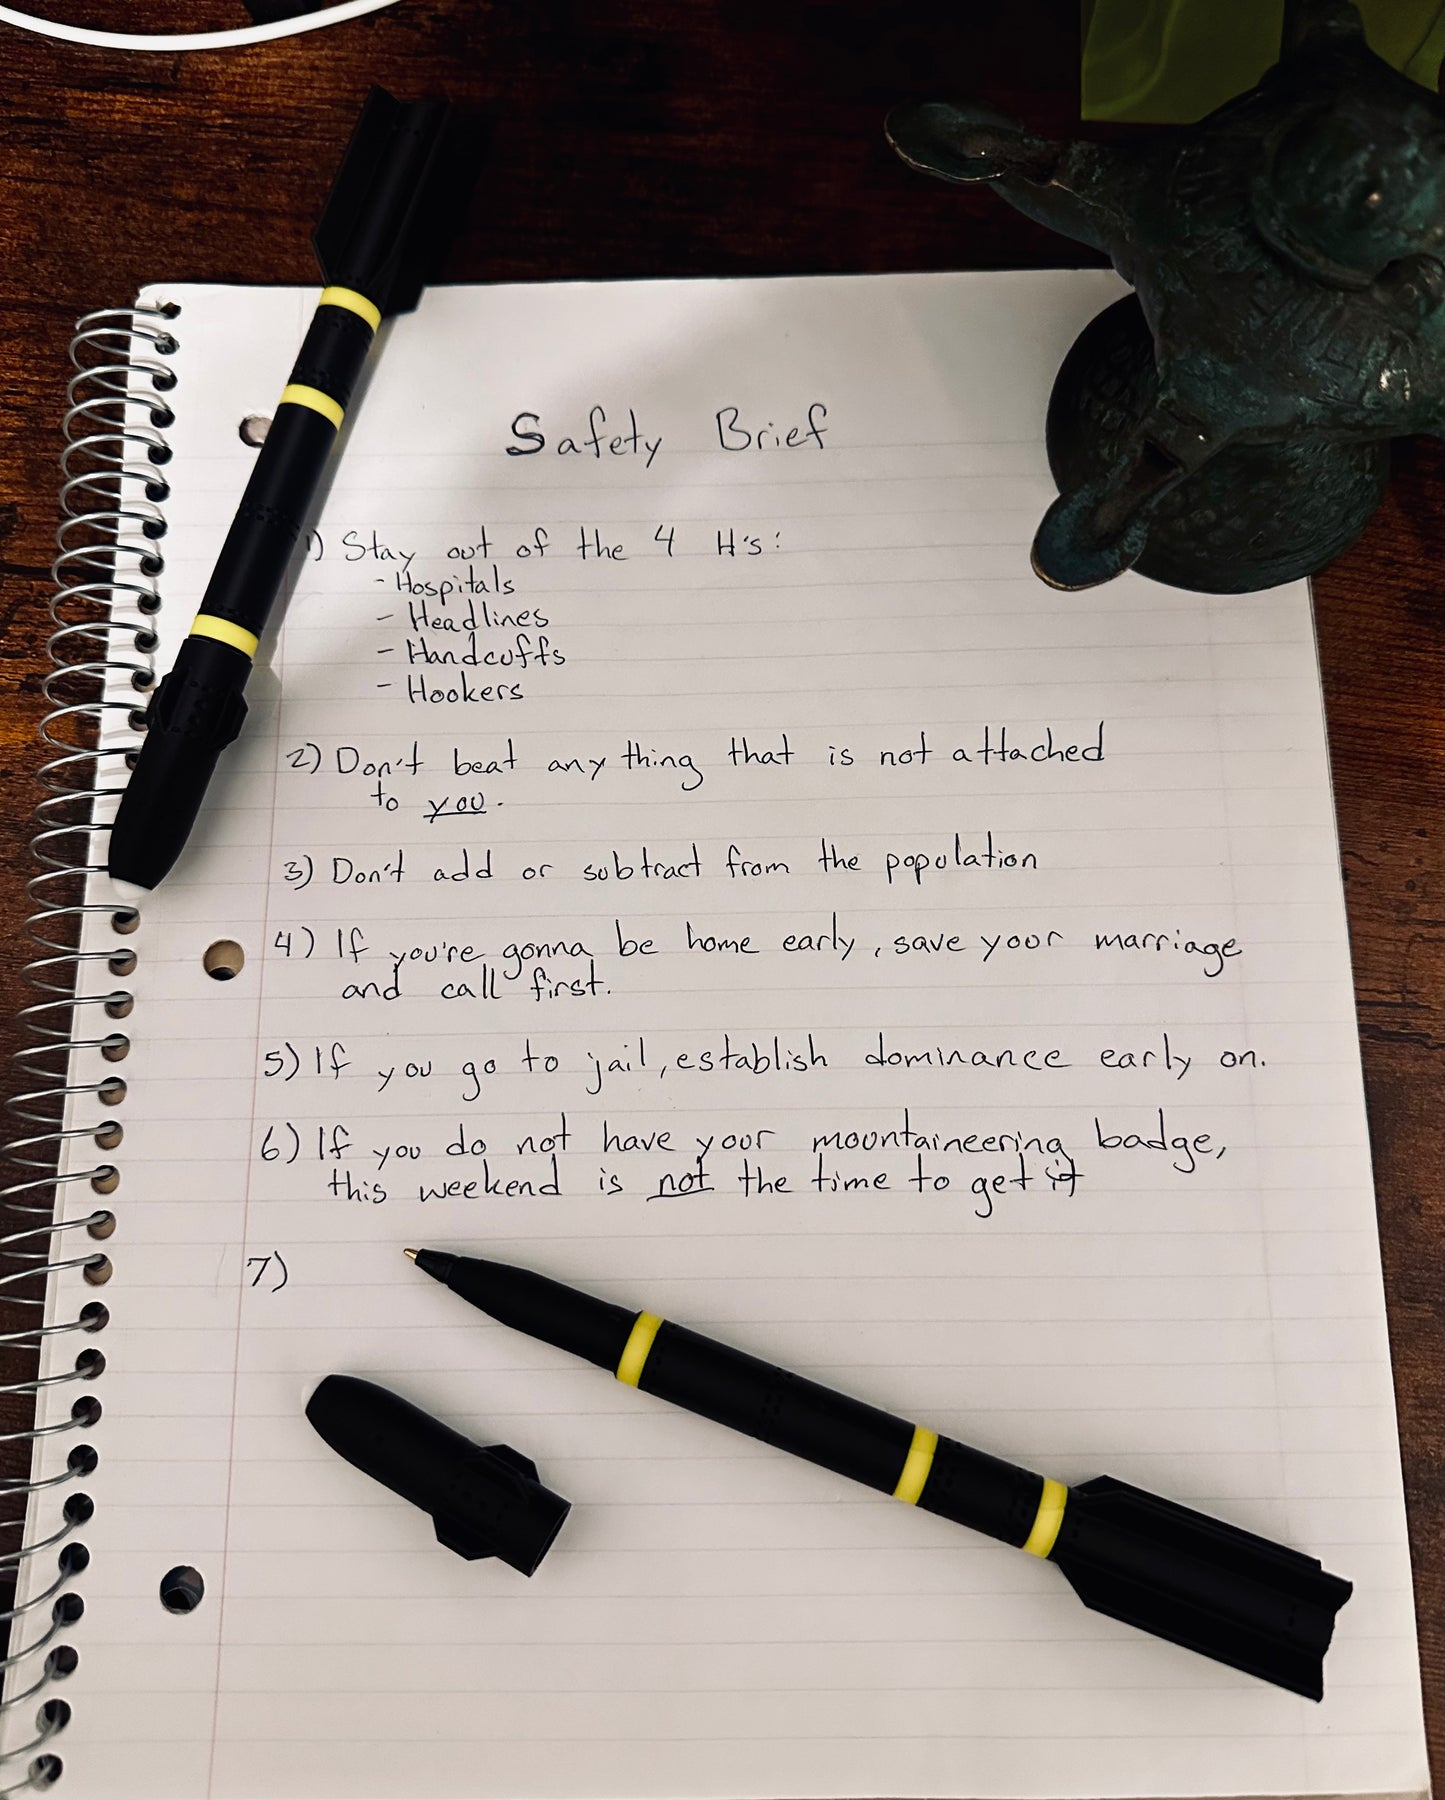 Safety Brief
1) Stay out of the 4 H's:
- Hospitals
- Headlines
- Handcuffs
- Hookers
2) Don't beat any thing that is not attached
to you.
3) Don't add or subtract from the population
4) If you're gonna be home early, save your marriage
and call first.
5) If you go to jail, establish dominance early on.
6) If you do not have your mountaineering badge,
this weekend is not the time to get it
7)